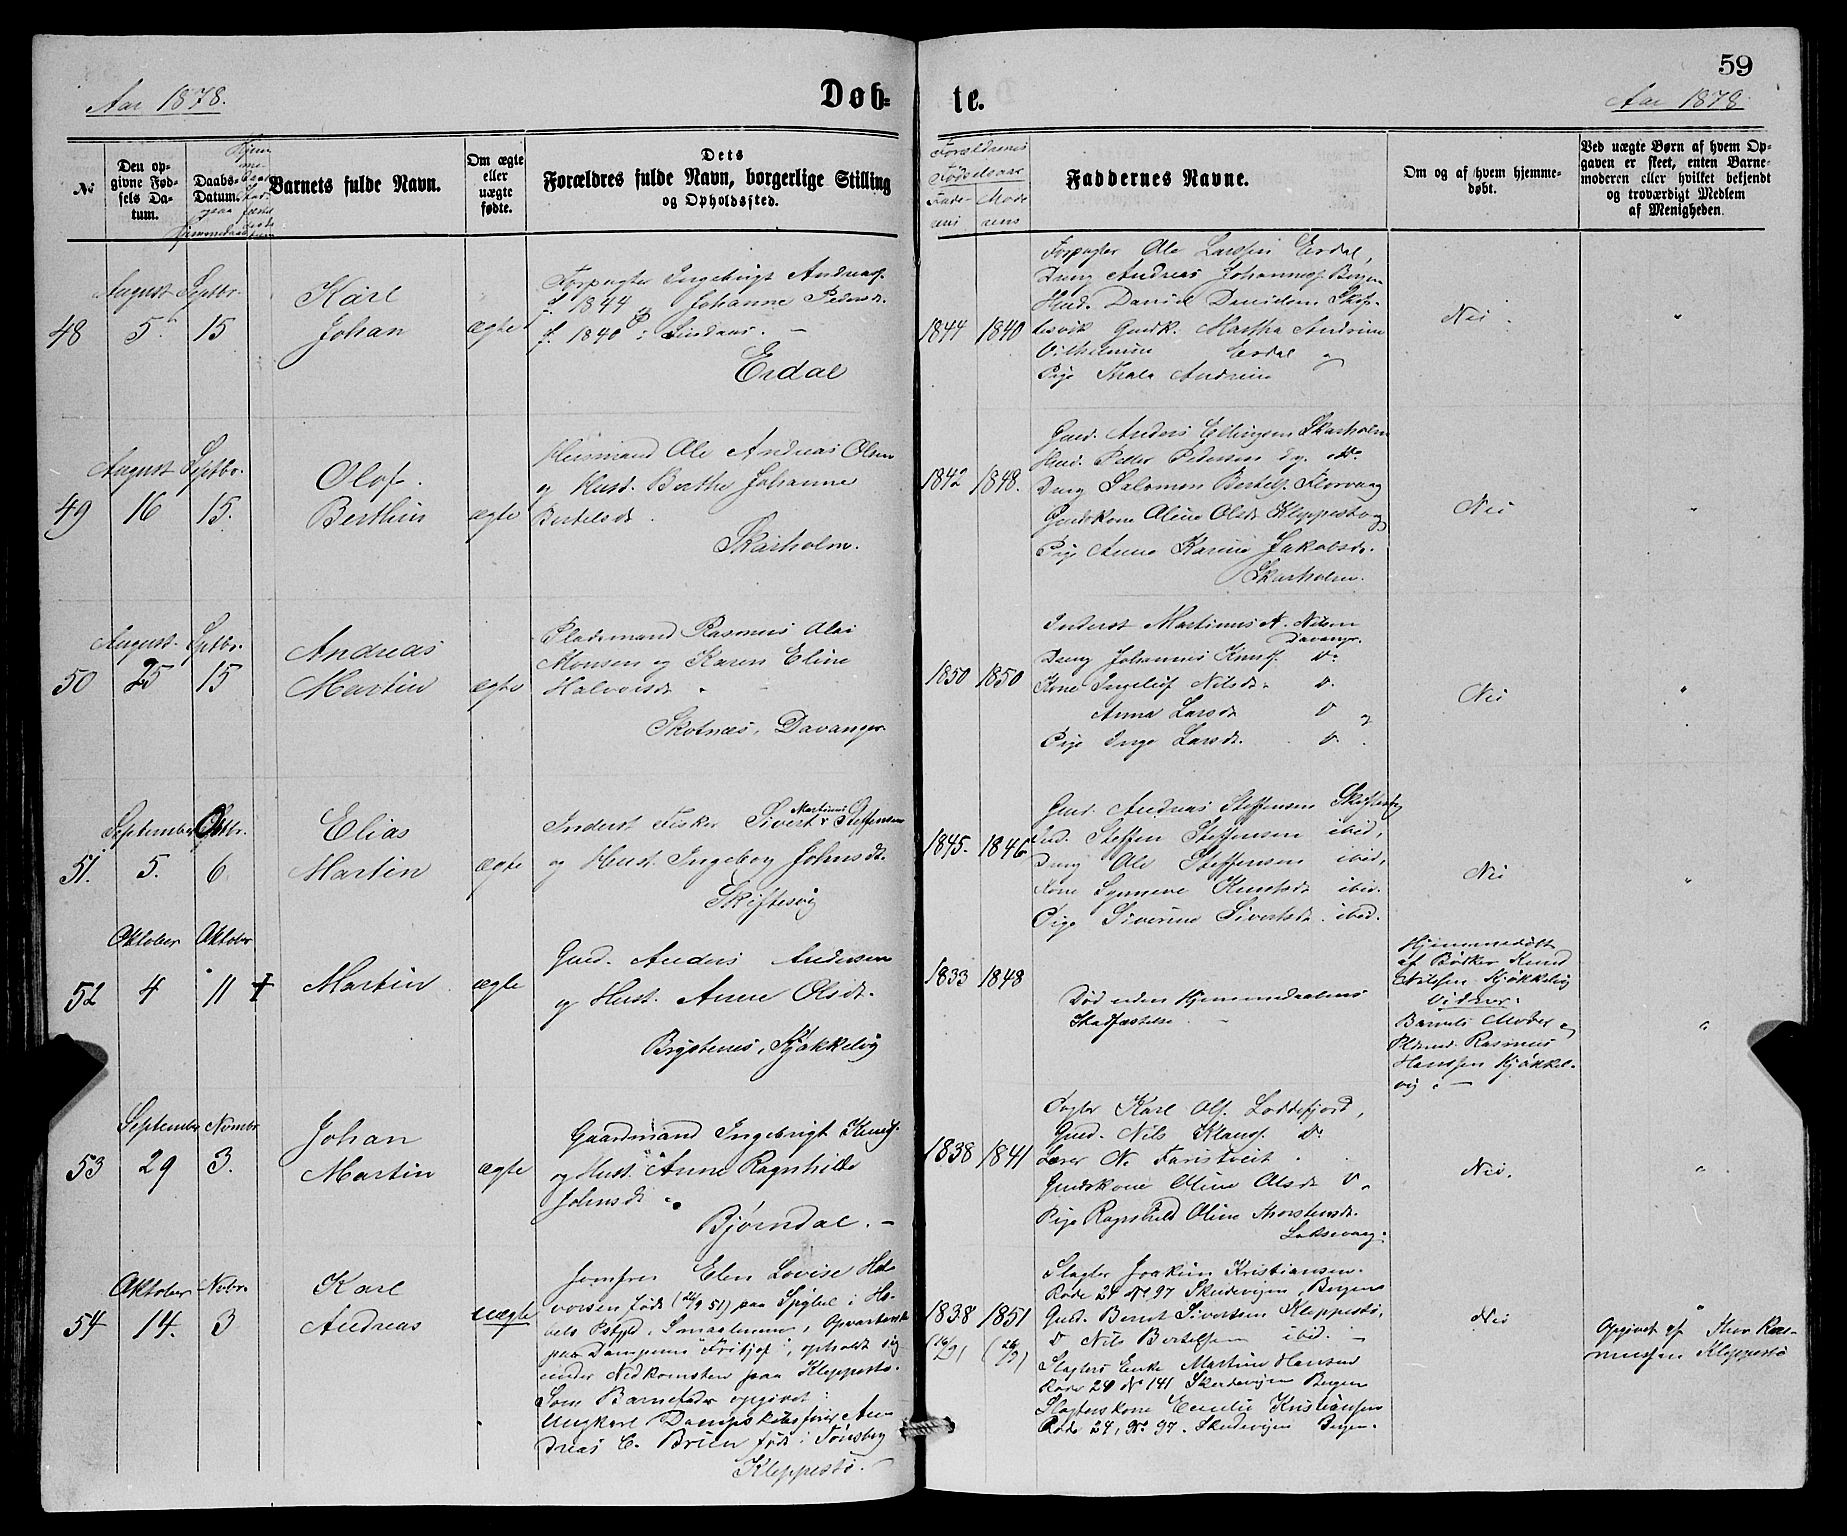 59
Aar 1878.
Døb-
te.
Aar 1878
No
Den op-
givne Fød-
sels Da-
tum.
Daabs-
Datum.
Barnets fulde Navn.
Om ægte
eller
uægte
fødte.
Dets
Forældres fulde Navn, borgerlige Stilling
og Opholdssted.
Forældrenes
Fødselsaar
Fade- Mode
rens rens
Faddernes Navne.
Om og af hvem hjemme-
døbt.
Ved uægte Børn af hvem Op-
gaven er skeet, enten Barne-
moderen eller hvilket bekjendt
og troværdigt Medlem
af Menigheden.
48
August
5
Septbr.
15
Karl
Johan
ægte
Forpagter Ingebrigt Andreas.
f. 1844 og Johanne Pedersdt.
f. 1840
Erdal
1844
1840
Forpagter Ole Larssen Erdal,
Dreng Andreas Johannes. Bergen
Husd. Daniel Danielsen
Gmdk. Martha Andrine
Vilhelmine Erdal og
Pige Thala Andrine
Nei
"
49
August
16
Septbr.
15.
Olof.
Berthin
ægte
Husmand Ole Andreas Olsen
og Hust. Berthe Johanne
Bertelsdt.
Skarholm.
1842
1848.
Gmd. Anders Ellingsen Skarholm
Husd. Peder Pedersen
Dreng Salomon Bertels. Florvaag
Gmdskone Oline Olsdt Kleppestø og
Pige Anne Karine Jakobsdt.
Skarholm.
Nei
"
50
August
25
Septbr.
15
Andreas
Martin
ægte
Pladsmand Rasmus Olai
Monsen og Karen Eline
Halvorsdt.
Skotnæs, Davanger.
1850
1850
Inderst Martinus N. Nilsen
Davanger.
Dreng Johannes Knuts. Do
Kone Ingeleif Nilsdt. D.
Anna Larsdt D og
Pige Inga Larsdt. D.
Nei
"
51.
September
5.
Oktbr.
6.
Elias
Martin
ægte
Inderst Fisker Sivert Martinus Steffensen
og Hust. Ingeborg Johnsdt.
Skiftesvig
1845.
1846
Gmd. Andreas Steffensen Skiftesvig
Steffen Steffensen ibid,
Dreng Ole Steffensen ibid,
Kone Synneve Knutsdt ibid.
Pige Siverine Sivertsdt. ibid.
Nei
"
52
Oktober
4
Oktober
11
Martin
ægte
Gmd. Anders Andersen
og Hust. Anne Olsdt.
Brystenes, Kjøkkelvig
1833
1848
Død uden Hjemmedaabens
Stadfæstelse.
Hjemmedøbt
af Bødker Knud
Nilssen Kjøkkelvig
Vidner:
Barnets Moder og
Rasmus
Hanssen Kjøkkel-
vig.
"
53
September
29
Novmbr
3.
Johan
Martin
ægte
Gaardmand Ingebrigt Knuds.
og Hust. Anne Ragnhilde
Johnsdt.
Bjørndal.
1838
1841
Karl Ols. Loddefjord,
Gmd. Nils Klaus. Do
Lærer N. Farestveit
Gmdskone Oline Olsdt D.
Pige Ragnhild Oline Thorstensdt.
Nei.
"
54
Oktober
14.
Novbr.
3
Karl
Andreas
uægte
Jomfru Elen Lovise Hal-
vorsen, født (26/9 51) paa
Smaalenene, Opvarterske
paa Dampsk. "Fritjof", opholdt sig
under Nedkomsten paa Kleppestø.
Som Barnefader opgivet:
Ungkarl Dampskibsfører An-
dreas C. Brun født i Tønsberg
Kleppestø.
1838
1851
(26/9)
Slagter Joakim Kristiansen.
Rode 24 No 97 Skudevigen, Bergen
Gmd. Bernt Sivertsen Kleppestø,
Do Nils Bertelsen ibid.
Slagters Enke Martine Hansen
Rode 24 No 141 Skudevigen Bergen
Slagterskone Emilie Kristiansen
Rode 24, No 97. Skudevigen Bergen.
Nei
"
Opgivet af Thor Ras-
mussen Kleppestø